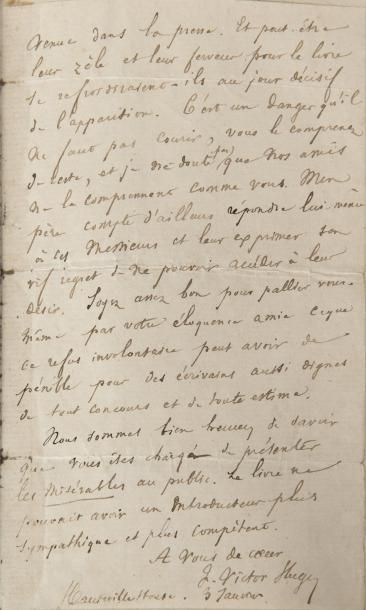 venue dans la presse. Et peut-être
leur zèle et leur ferveur pour le livre
se refroidiraient-ils au jour décisif
de l'apparition. C'est un danger qu'il
ne faut pas courir, vous le comprenez
de reste, et je ne doute pas que nos amis
ne le comprennent comme vous. Mon
père compte d'ailleurs répondre lui-même
à ces Messieurs et leur exprimer son
vif regret de ne pouvoir accéder à leur
désir. Soyez assez bon pour pallier vous-
même par votre éloquence amie ce que
ce refus involontaire peut avoir de
pénible pour des écrivains aussi dignes
de tout concours et de toute estime.
Nous sommes bien heureux de savoir
que vous êtes chargé de présenter
les Misérables au public. Le livre ne
pouvait avoir un introducteur plus
sympathique et plus compétent.
A vous de cœur
F. Victor Hugo
Hauteville House. 3 Janvier